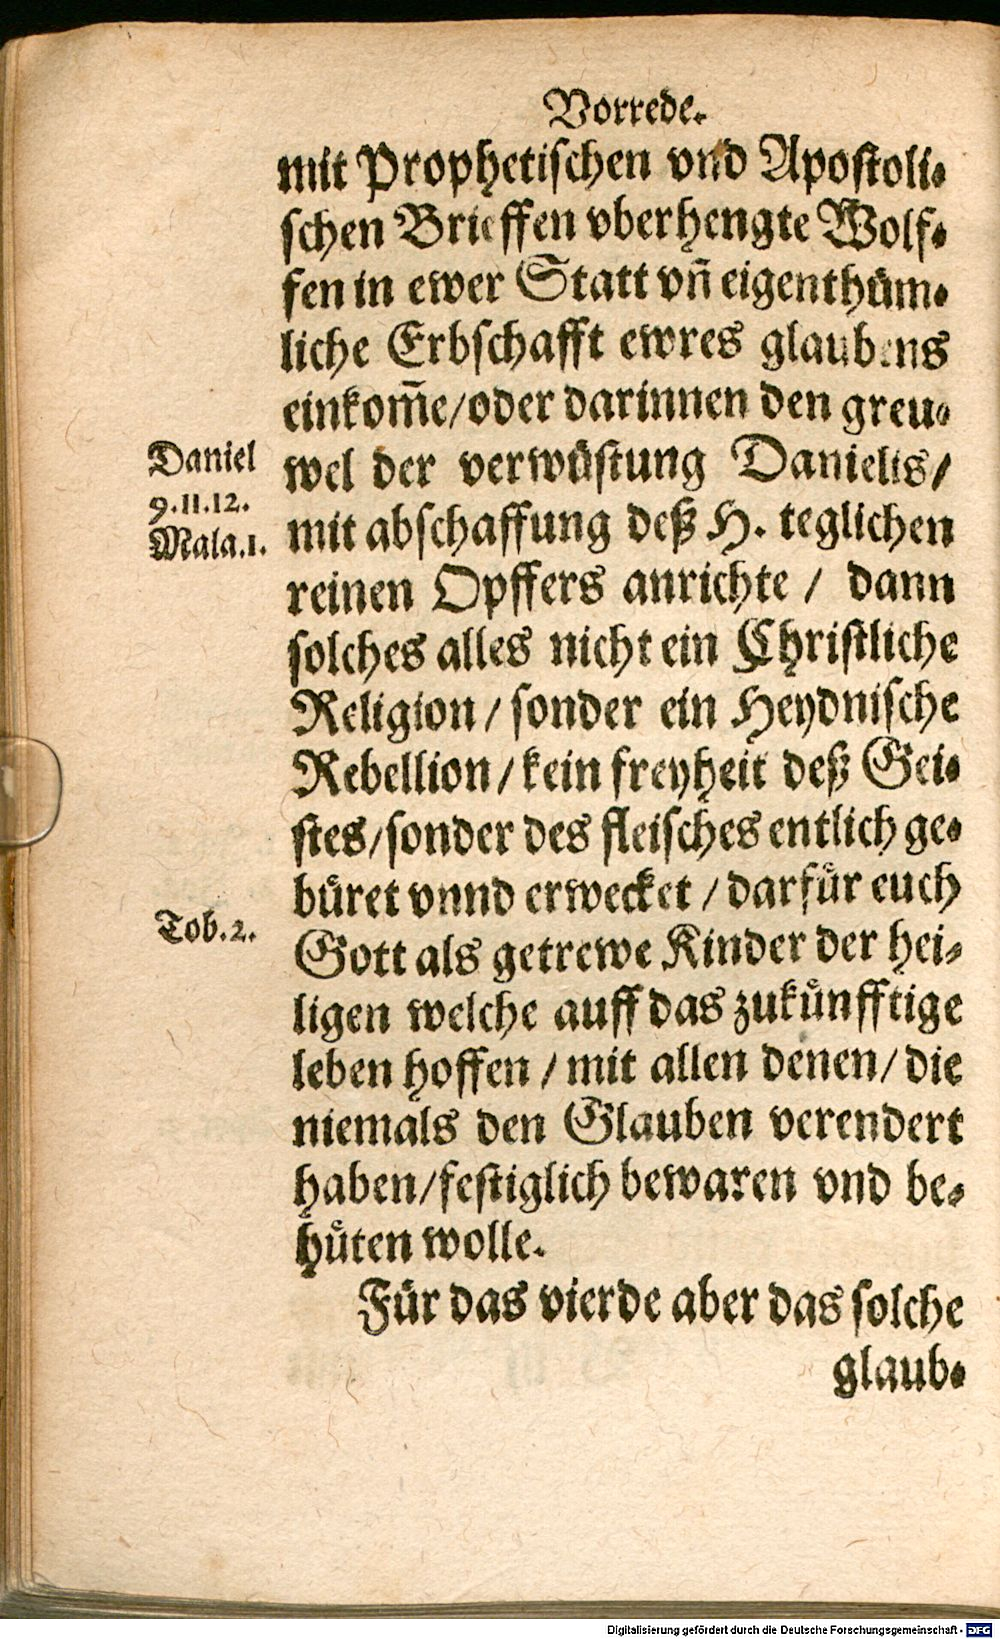 Vorrede.
mit Prophetischen vnd Apostoli-
schen Brieffen vberhengte Wolf-
fen in ewer Statt vn̄ eigenthüm-
liche Erbschafft ewres glaubens
einkom̄e/oder darinnen den greu-
Daniel
9.11.12.
Mala.1.
wel der verwüstung Danielis/
mit abschaffung deß H. teglichen
reinen Opffers anrichte / dann
solches alles nicht ein Christliche
Religion/ sonder ein Heydnische
Rebellion/ kein freyheit deß Gei-
stes/sonder des fleisches entlich ge-
büret vnnd erwecket / darfür euch
Tob.2.
Gott als getrewe Kinder der hei-
ligen welche auff das zukünfftige
leben hoffen / mit allen denen/ die
niemals den Glauben verendert
haben/festiglich bewaren vnd be-
hüten wolle.
Für das vierde aber das solche
glaub-
Digitalisierung gefördert durch die Deutsche Forschungsgemeinschaft - DFG